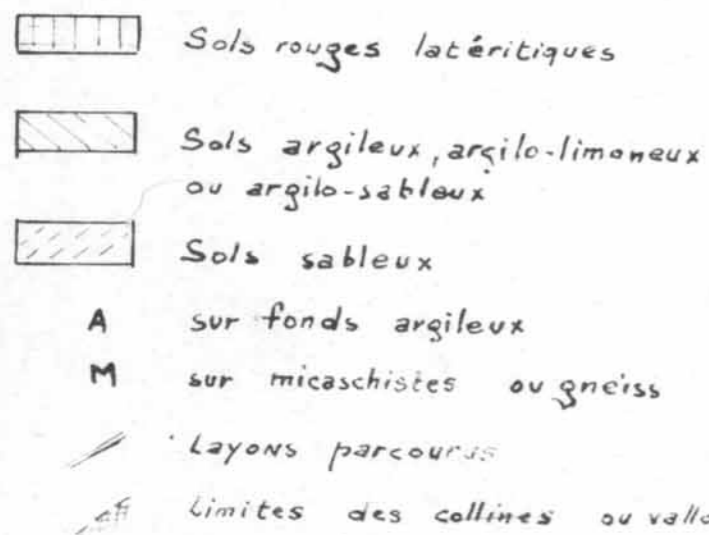 Sols rouges latéritiques
Sols argileux, argilo-limoneux
ou argilo-sableux
Sols sableux
A sur fonds argileux
M sur micaschistes ou gneiss
Layons parcourus
Limites des collines ou vallo